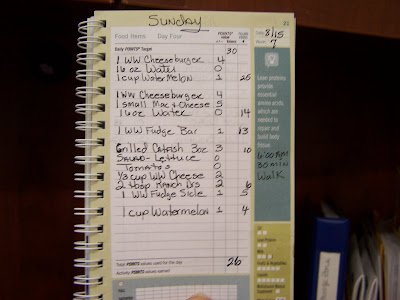 Sunday
21
Food Items Day Four
Daily POINTS Target 30
1 WW Cheeseburger 4
16 oz Water 0
1 cup Watermelon 1 25
1 WW Cheeseburger 4
1 Small Mac & Cheese 5
16 oz Water 0 14
1 WW Fudge Bar 1 13
Grilled Catfish 3oz 3 10
Salad - Lettuce 0
Tomatoes 0
1/3 cup WW Cheese 2
2 tbsp Ranch Drs 2 6
1 WW Fudge Sicle 1 5
1 cup Watermelon 1 4
Total POINTS values used for the day 26
Activity POINTS values earned
Date 8/15
Week 7
Lean proteins
provide
essential
amino acids,
which are
needed to
repair and
build body
tissue.
6:00 Am
30 min
Walk